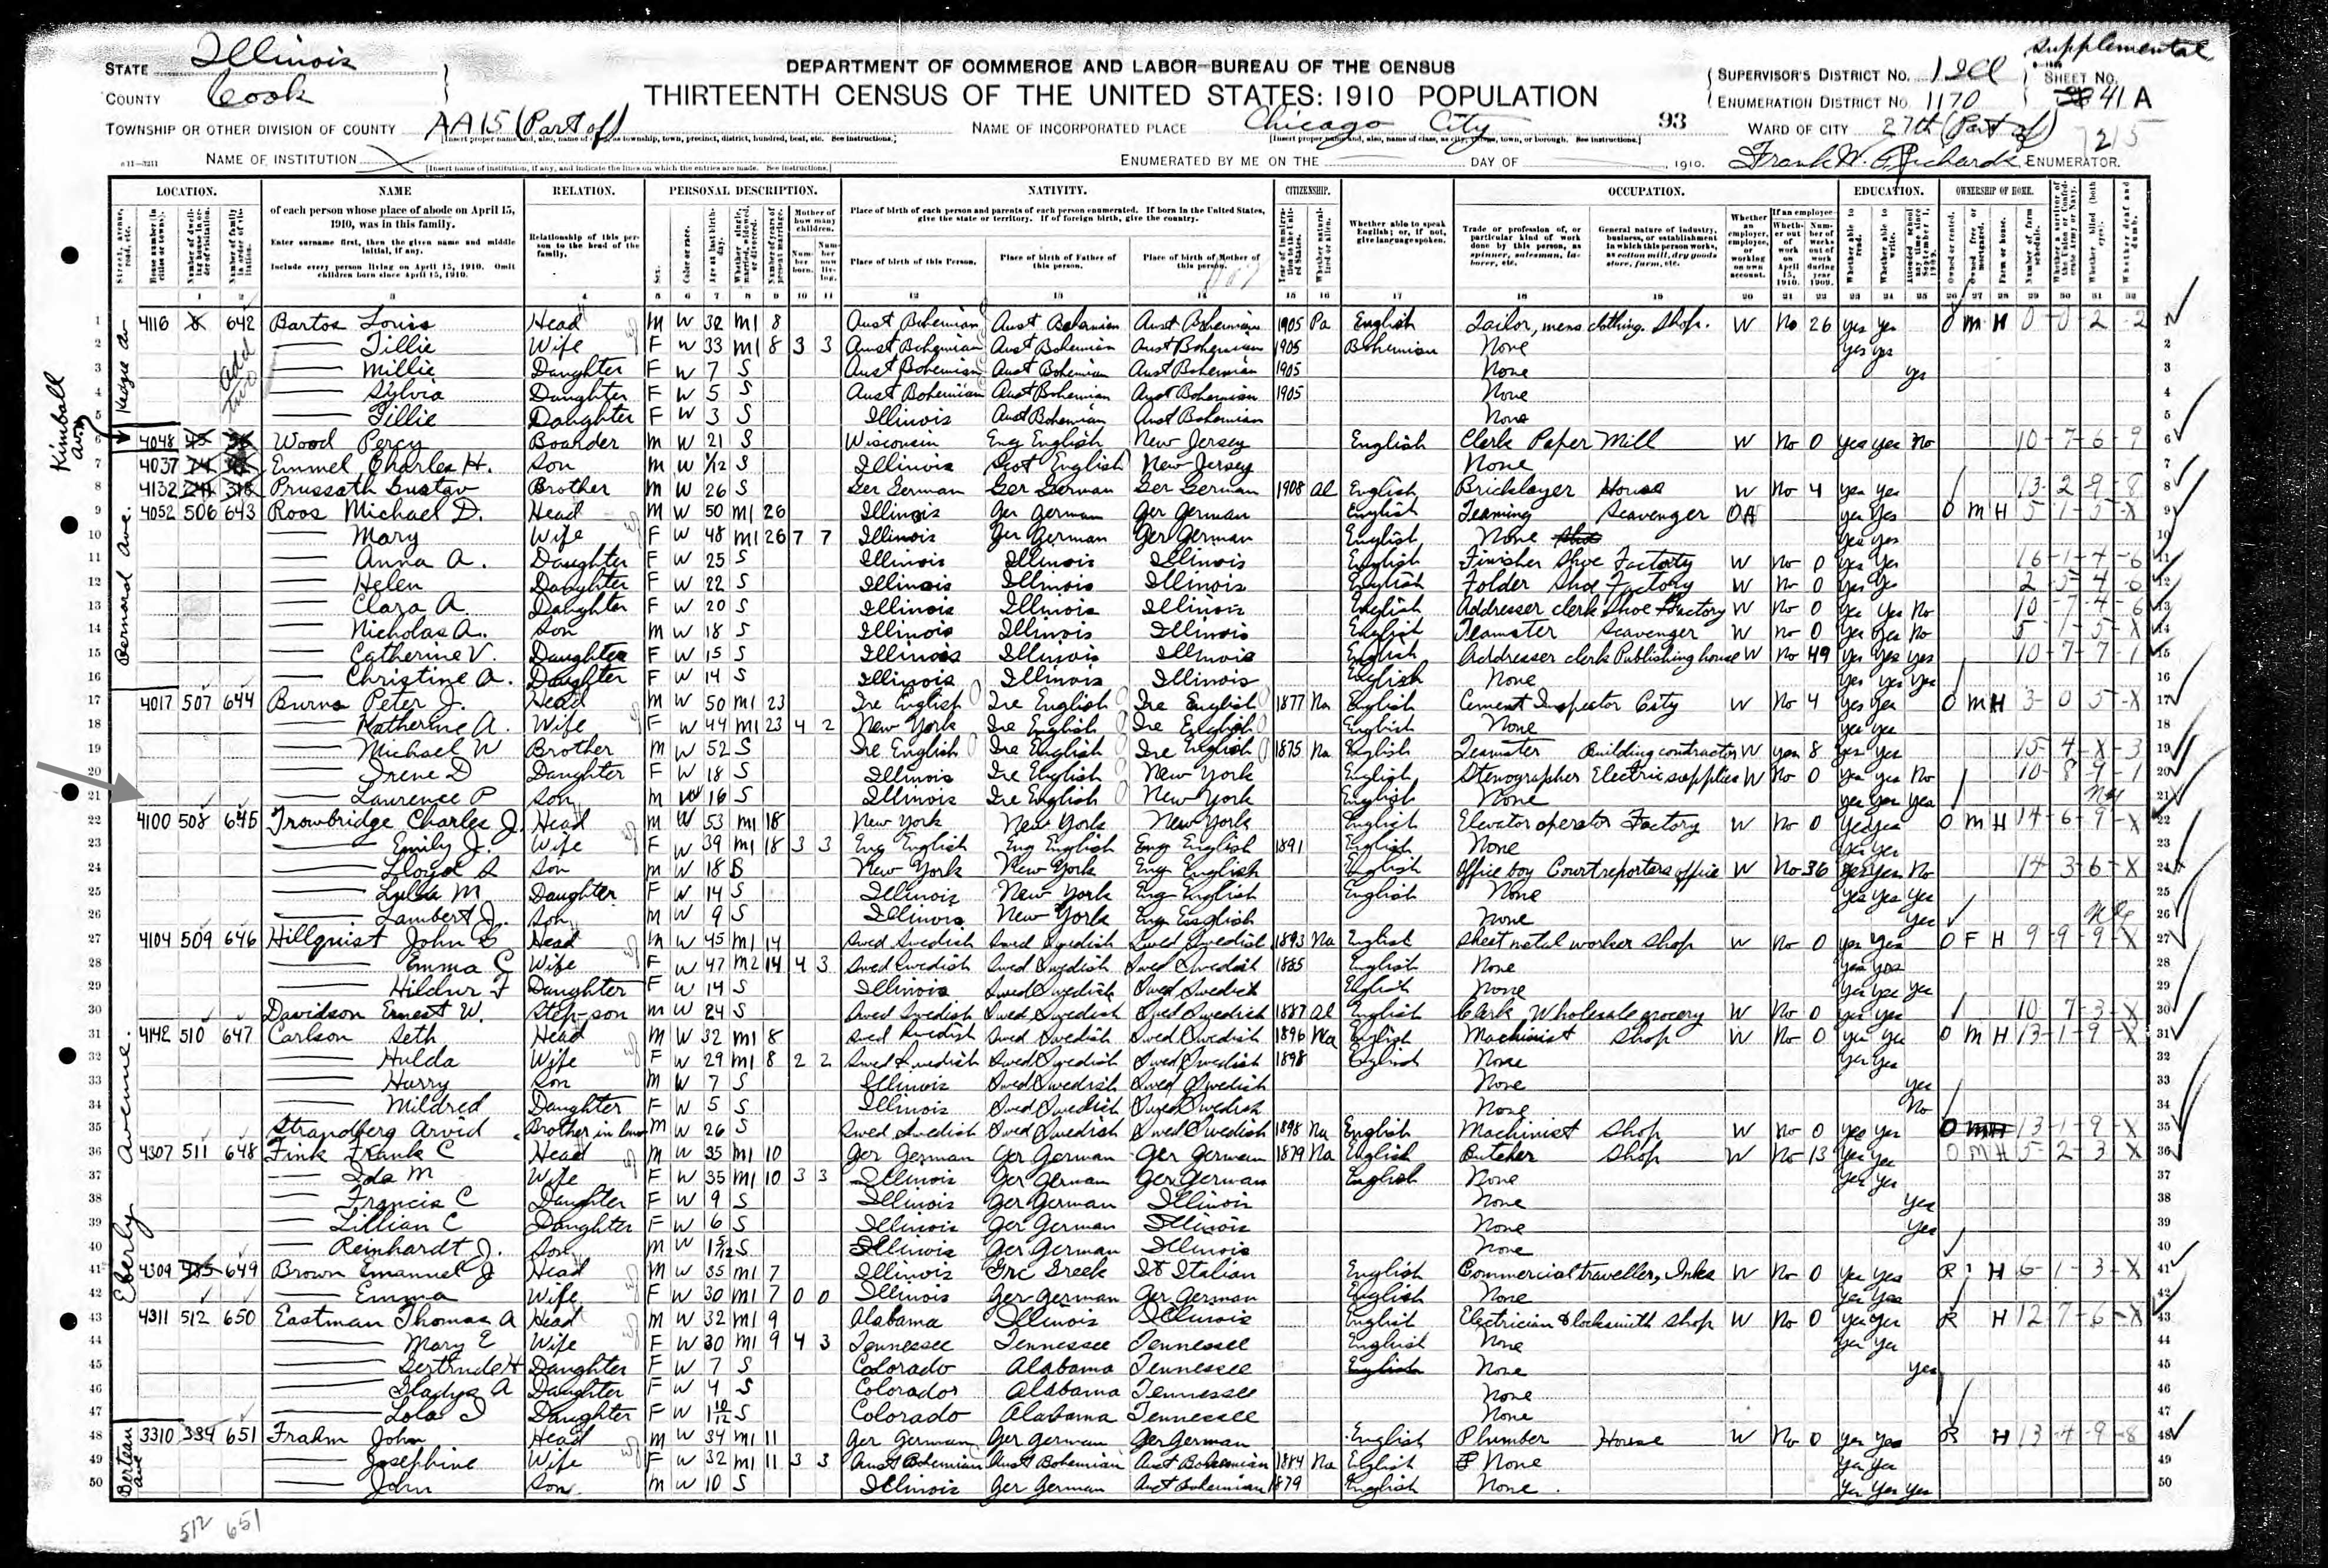 supplemental
STATE Illinois
COUNTY Cook
DEPARTMENT OF COMMERCE AND LABOR-BUREAU OF THE CENSUS
THIRTEENTH CENSUS OF THE UNITED STATES: 1910 POPULATION
SUPERVISOR'S DISTRICT NO. 1 Ill
ENUMERATION DISTRICT NO. 1170
SHEET NO.
41 A
TOWNSHIP OR OTHER DIVISION OF COUNTY (Part of)
NAME OF INCORPORATED PLACE Chicago City
93
WARD OF CITY 27th (Part of)
NAME OF INSTITUTION X
ENUMERATED BY ME ON THE DAY OF , 1910.
Frank W. ENUMERATOR.
LOCATION. NAME RELATION. PERSONAL DESCRIPTION. NATIVITY. CITIZENSHIP. OCCUPATION. EDUCATION. OWNERSHIP OF HOME.
of each person whose place of abode on April 15, 1910, was in this family.
Enter surname first, then the given name and middle initial, if any.
Include every person living on April 15, 1910. Omit children born since April 15, 1910.
Relationship of this person to the head of the family.
Place of birth of each person and parents of each person enumerated. If born in the United States, give the state or territory. If of foreign birth, give the country.
Place of birth of this Person. Place of birth of Father of this person. Place of birth of Mother of this person.
Whether able to speak English; or, if not, give language spoken.
1 4116 642 Bartos Louis Head M W 32 M1 8 Aust Bohemian Aust Bohemian Aust Bohemian 1905 Pa English Tailor, mens clothing. Shop. W No 26 yes yes O M H
2 Tillie Wife F W 33 M1 8 3 3 Aust Bohemian Aust Bohemian Aust Bohemian 1905 Bohemian None yes yes
3 Millie Daughter F W 7 S Aust Bohemian Aust Bohemian Aust Bohemian 1905 None yes
4 Sylvia Daughter F W 5 S Aust Bohemian Aust Bohemian Aust Bohemian 1905 None
5 Tillie Daughter F W 3 S Illinois Aust Bohemian Aust Bohemian None
Kimball ave
6 4048 Wood Percy Boarder M W 21 S Wisconsin Eng English New Jersey English Clerk Paper Mill W No 0 yes yes No 10-7-6-9
7 4037 Emmel Charles H. Son M W 1/12 S Illinois Scot English New Jersey None
8 4132 Prussath Gustav Brother M W 26 S Ger German Ger German Ger German 1908 Al English Bricklayer House W No 4 yes yes 13-2-9-8
Bernard Ave.
9 4052 506 643 Roos Michael D. Head M W 50 M1 26 Illinois Ger German Ger German English Teaming Scavenger OA yes yes O M H 5-1-5-X
10 Mary Wife F W 48 M1 26 7 7 Illinois Ger German Ger German English None yes yes
11 Anna A. Daughter F W 25 S Illinois Illinois Illinois English Finisher Shoe Factory W No 0 yes yes 16-1-4-6
12 Helen Daughter F W 22 S Illinois Illinois Illinois English Folder Shoe Factory W No 0 yes yes
13 Clara A. Daughter F W 20 S Illinois Illinois Illinois English Addresser clerk Shoe Factory W No 0 yes yes No 10-7-4-6
14 Nicholas A. Son M W 18 S Illinois Illinois Illinois English Teamster Scavenger W No 0 yes yes No 5-1-5-X
15 Catherine V. Daughter F W 15 S Illinois Illinois Illinois English Addresser clerk Publishing house W No 49 yes yes yes 10-7-7-1
16 Christine A. Daughter F W 14 S Illinois Illinois Illinois English None yes yes yes
17 4017 507 644 Burns Peter J. Head M W 50 M1 23 Ire English Ire English Ire English 1877 Na English Cement Inspector City W No 4 yes yes O M H 3-0-5-X
18 Katherine A. Wife F W 44 M1 23 4 2 New York Ire English Ire English English None yes yes
19 Michael W Brother M W 52 S Ire English Ire English Ire English 1875 Na English Teamster Building contractor W yes 8 yes yes 15-4-X-3
20 Irene D Daughter F W 18 S Illinois Ire English New York English Stenographer Electric supplies W No 0 yes yes No 10-8-9-1
21 Laurence P Son M W 16 S Illinois Ire English New York English None yes yes yes
Eberly Avenue.
22 4100 508 645 Trowbridge Charles J. Head M W 53 M1 18 New York New York New York English Elevator operator Factory W No 0 yes yes O M H 14-6-9-X
23 Emily J. Wife F W 39 M1 18 3 3 Eng English Eng English Eng English 1891 English None yes yes
24 Lloyd Son M W 18 S New York New York Eng English English Office boy Court reporters office W No 36 yes yes No 14-3-6-X
25 Lulu M Daughter F W 14 S Illinois New York Eng English English None yes yes yes
26 Lambert J. Son M W 9 S Illinois New York Eng English None yes
27 4104 509 646 Hillquist John Head M W 45 M1 14 Swed Swedish Swed Swedish Swed Swedish 1893 Na English Sheet metal worker Shop W No 0 yes yes O F H 9-9-9-X
28 Emma Wife F W 47 M2 14 4 3 Swed Swedish Swed Swedish Swed Swedish 1885 English None yes yes
29 Hildur F Daughter F W 14 S Illinois Swed Swedish Swed Swedish English None yes yes yes
30 Davidson Ernest W. Step-son M W 24 S Swed Swedish Swed Swedish Swed Swedish 1887 Al English Clerk Wholesale grocery W No 0 yes yes 10-7-3-X
31 4142 510 647 Carlson Seth Head M W 32 M1 8 Swed Swedish Swed Swedish Swed Swedish 1896 Na English Machinist Shop W No 0 yes yes O M H 13-1-9-X
32 Hulda Wife F W 29 M1 8 2 2 Swed Swedish Swed Swedish Swed Swedish 1898 English None yes yes
33 Harry Son M W 7 S Illinois Swed Swedish Swed Swedish None yes
34 Mildred Daughter F W 5 S Illinois Swed Swedish Swed Swedish None No
35 Strandberg Arvid Brother in law M W 26 S Swed Swedish Swed Swedish Swed Swedish 1898 Na English Machinist Shop W No 0 yes yes 13-1-9-X
36 4307 511 648 Fink Frank C Head M W 35 M1 10 Ger German Ger German Ger German 1879 Na English Butcher Shop W No 13 yes yes O M H 5-2-3-X
37 Ida M Wife F W 35 M1 10 3 3 Illinois Ger German Ger German English None yes yes
38 Francis C Daughter F W 9 S Illinois Ger German Illinois None yes
39 Lillian C Daughter F W 6 S Illinois Ger German Illinois None yes
40 Reinhardt J. Son M W 1 5/12 S Illinois Ger German Illinois None
41 4309 649 Brown Emanuel J Head M W 35 M1 7 Illinois Grc Greek It Italian English Commercial traveller, Inks W No 0 yes yes R H 6-1-3-X
42 Emma Wife F W 30 M1 7 0 0 Illinois Ger German Ger German English None yes yes
43 4311 512 650 Eastman Thomas A Head M W 32 M1 9 Alabama Illinois Illinois English Electrician & locksmith Shop W No 0 yes yes R H 12-7-6-X
44 Mary E Wife F W 30 M1 9 4 3 Tennessee Tennessee Tennessee English None yes yes
45 Gertrude H Daughter F W 7 S Colorado Alabama Tennessee English None yes
46 Gladys A Daughter F W 4 S Colorado Alabama Tennessee None
47 Lola I Daughter F W 1 10/12 S Colorado Alabama Tennessee None
Berteau ave
48 3310 334 651 Frahm John Head M W 34 M1 11 Ger German Ger German Ger German English Plumber House W No 0 yes yes R H 13-4-9-8
49 Josephine Wife F W 32 M1 11 3 3 Aust Bohemian Aust Bohemian Aust Bohemian 1884 Na English None yes yes
50 John Son M W 10 S Illinois Ger German Aust Bohemian 1879 English None yes yes yes
512 651